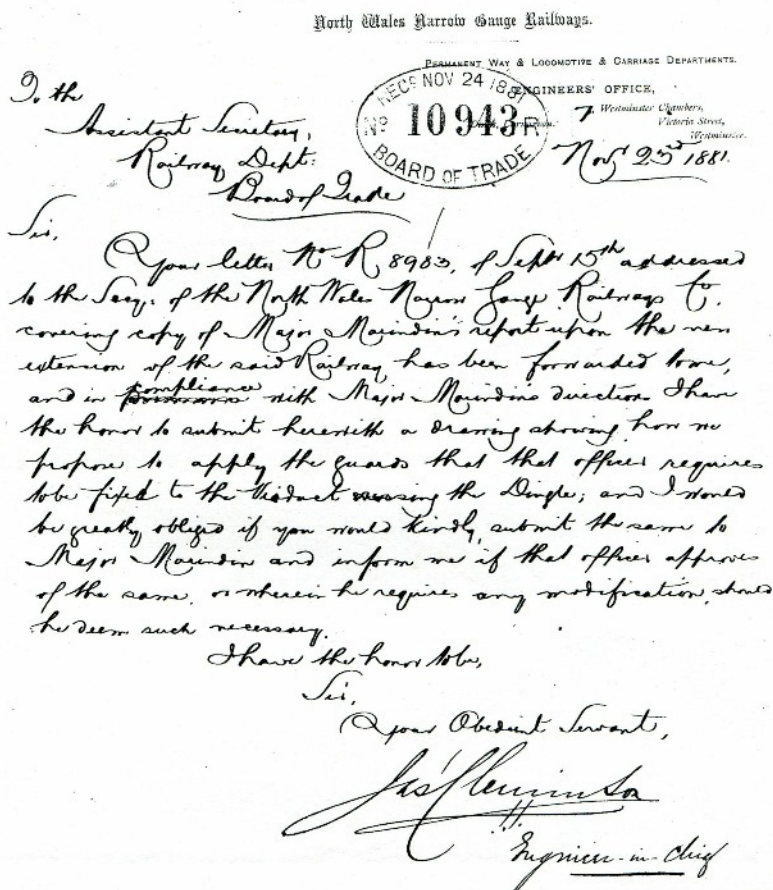 North Wales Narrow Gauge Railways.
Permanent Way & Locomotive & Carriage Departments.
Engineers' Office,
7 Westminster Chambers,
Victoria Street,
Westminster.
RECD NOV 24 1881
No 10943 R
BOARD OF TRADE
Novr 23rd 1881.
To the
Assistant Secretary,
Railway Dept:
Board of Trade
Sir,
Your letter No R 8983, of Septr 15th addressed
to the Secy: of the North Wales Narrow Gauge Railways Co.
covering copy of Major Marindin's report upon the new
extension of the said Railway has been forwarded to me,
and in compliance with Major Marindin's directions I have
the honor to submit herewith a drawing showing how we
propose to apply the guards that that officer requires
to be fixed to the Viaduct crossing the Dingle; and I would
be greatly obliged if you would kindly submit the same to
Major Marindin and inform me if that officer approves
of the same, or wherein he requires any modification, should
he deem such necessary.
I have the honor to be,
Sir,
Your Obedient Servant,
Jas Cleminson
Engineer-in-Chief